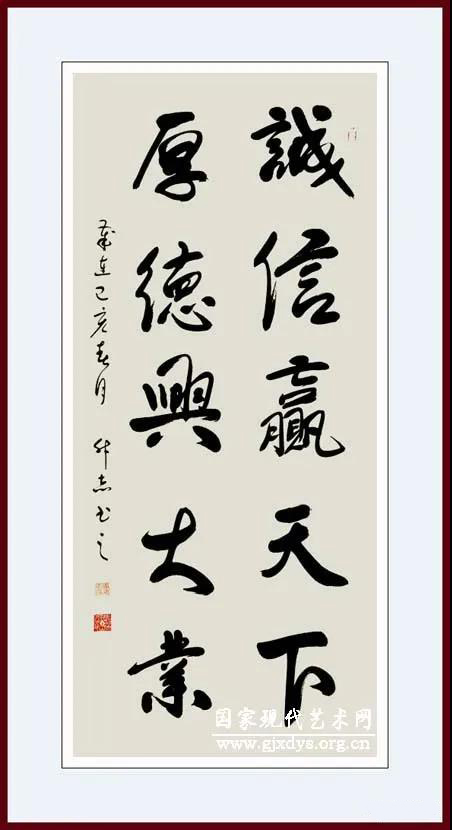 誠信贏天下
厚德興大業
歲在己亥春月 志书之
国家现代艺术网
www.gjxdys.org.cn